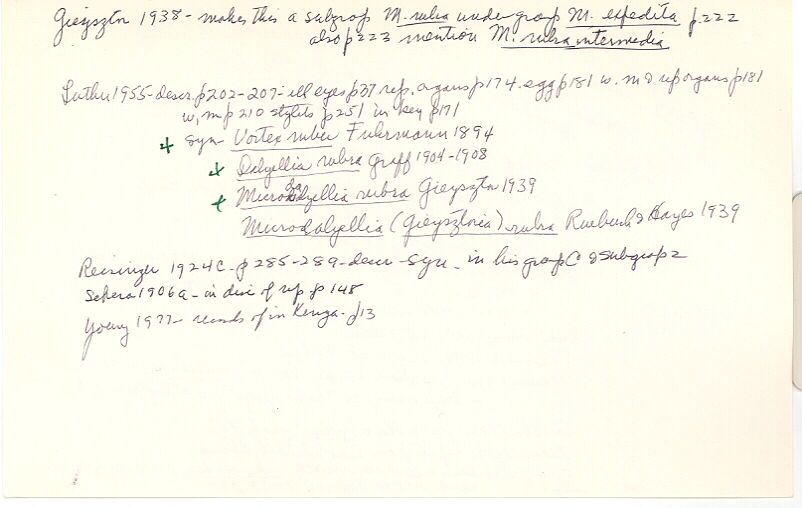 Gieysztor 1938 - makes this a subgroup M. rubra under group M. expedita p.222
also p223 mention M. rubra intermedia
Luther 1955 - descr. p202-207 - ill eyes p37 rep. organs p174. egg p181 w. m & rep organs p181
w, m p 210 stylets p251 in key p171
+ syn Vortex ruber Fuhrmann 1894
+ Dalyellia rubra Graff 1904-1908
+ Microdalyellia rubra Gieysztor 1939
Microdalyellia (Gieysztoria) rubra Ruebush & Hayes 1939
Reisinger 1924c - p 285-289 - descr - syn - in his group C & subgroup 2
Sekera 1906a - in disc of rep. p 148
Young 1977 - records of in Kenya - p13